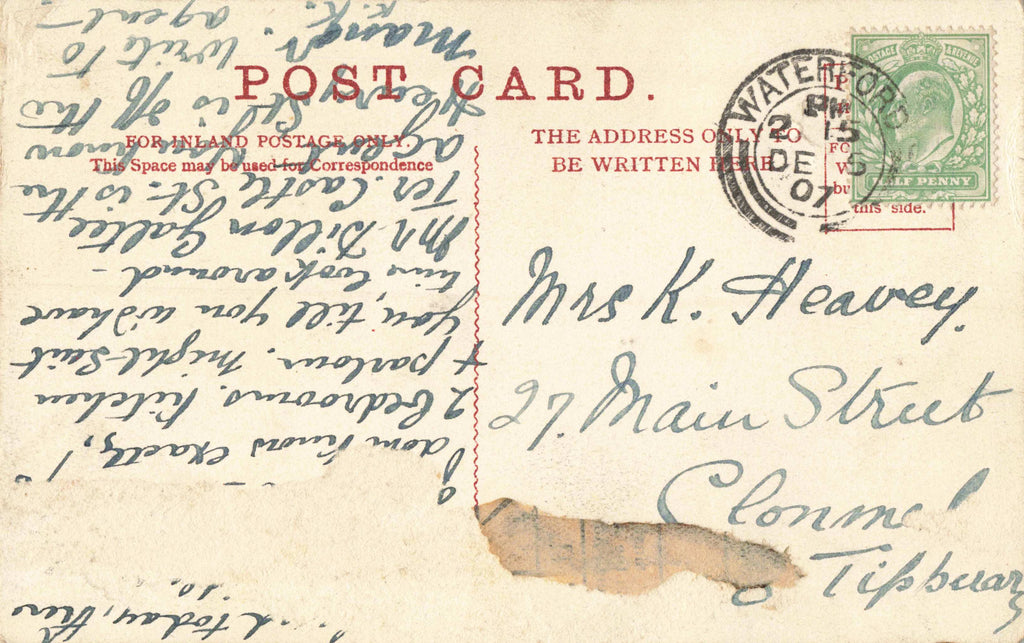 POST CARD.
FOR INLAND POSTAGE ONLY.
This Space may be used for Correspondence
THE ADDRESS ONLY TO
BE WRITTEN HERE
WATERFORD
PM
2 15
DE 5
07
POSTAGE & REVENUE
HALF PENNY
this side.
Mrs K. Heavey.
27. Main Street
Clonmel
Tipperary
today, there
I don't know exactly, 1
2 bedrooms. Kitchen
+ parlour. might suit
you, till you wd have
time look around -
Mr Dillon Galtee
Ter. Castle St. is the
ag
Heary St. is off this
Mang. Write to
agent
K.K.